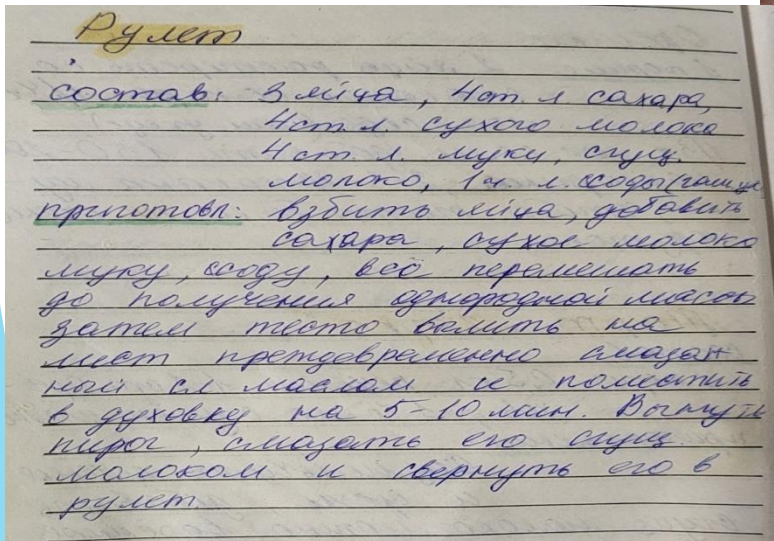 Рулет
состав: 3 яйца, 4 ст. л. сахара,
4 ст. л. сухого молока
4 ст. л. муки, сгущ.
молоко, 1 ч. л. соды
приготовл: взбить яйца, добавить
сахара, сухое молоко
муку, соду, всё перемешать
до получения однородной массы
затем тесто вылить на
лист преждевременно смазан
ный сл маслом и поместить
в духовку на 5-10 мин. Вынуть
пирог, смазать его сгущ.
молоком и свернуть его в
рулет